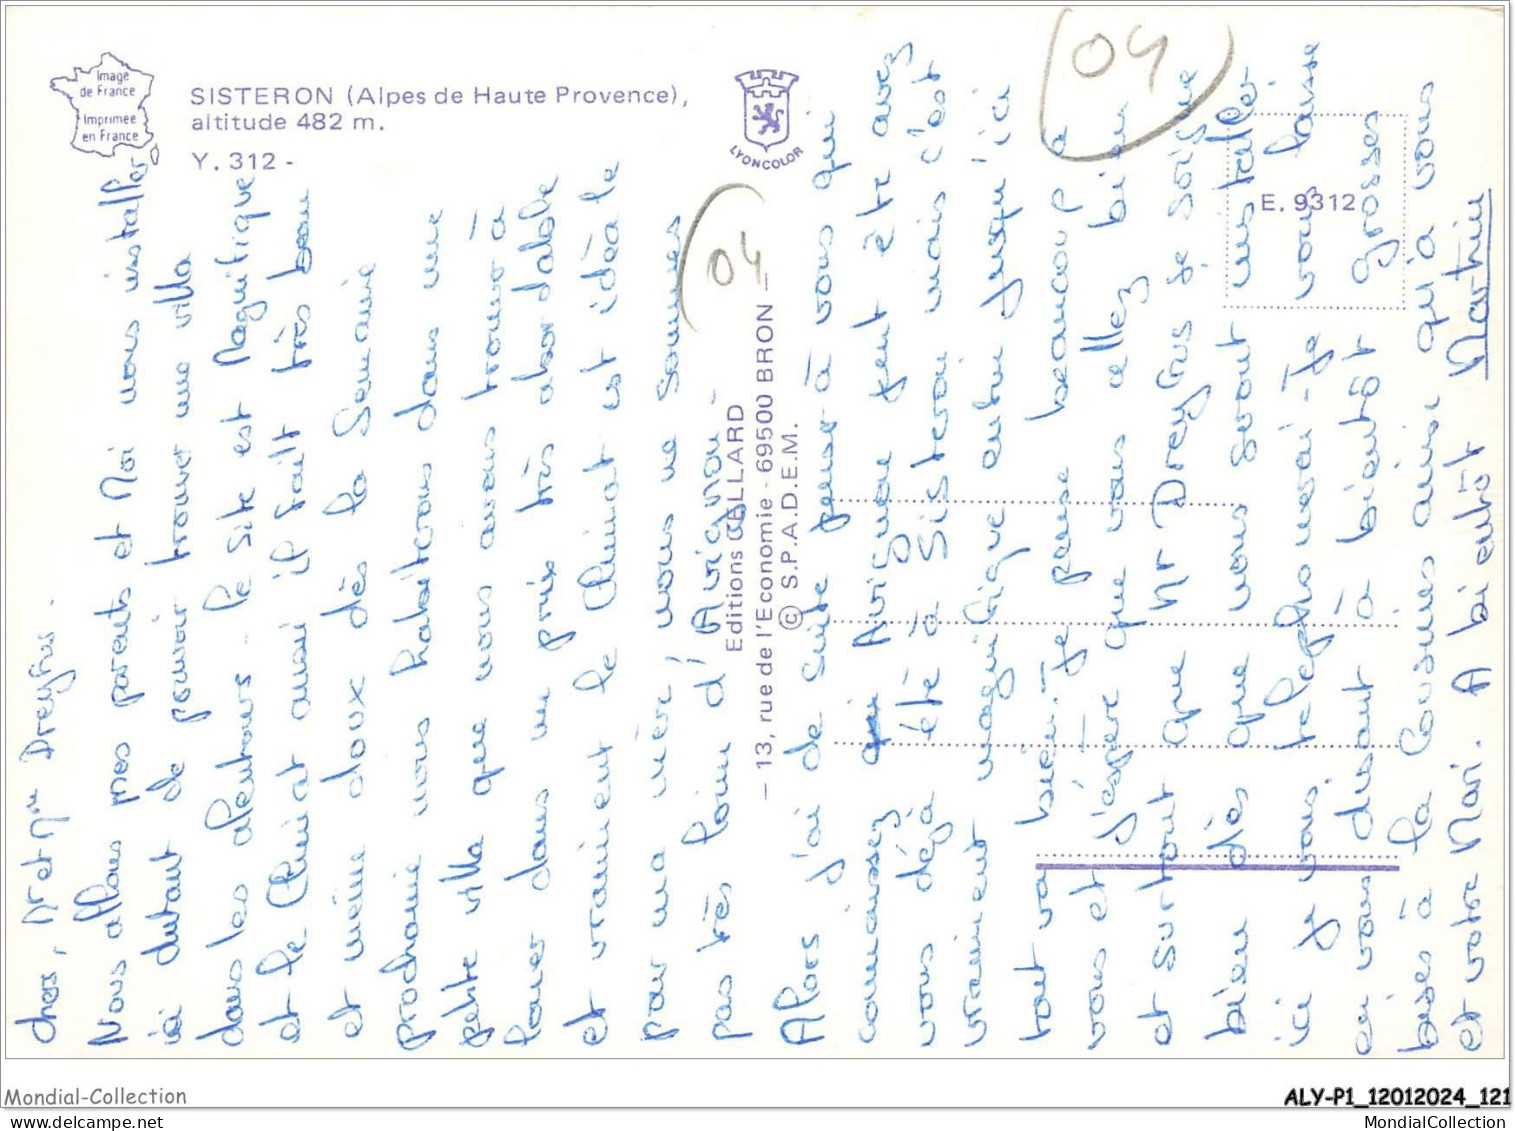 Image
de France
Imprimée
en France
SISTERON (Alpes de Haute Provence),
altitude 482 m.
Y. 312 -
LYONCOLOR
04
04
E. 9312
Editions CELLARD
— 13, rue de l'Economie - 69500 BRON —
© S.P.A.D.E.M.
chers, Mr et Mme Dreyfus.
Nous allons mes parents et Moi nous installer
ici dutant de pouvoir trouver une villa
dans les alentours - le site est Magnifique
et le Climat aussi il fait très beau
et même doux dès la Semaine
prochaine nous habiterons dans une
petite villa que nous avons trouvé à
louer dans un prix très abordable
et vraiment le Climat est idéale
pour ma mère, nous ne sommes
pas très loin d'Avignon -
Alors j'ai de suite penser à vous qui
connaissez Avignon peut être avez
vous déjà été à Sisteron mais c'est
vraiment magnifique enfin jusqu'ici
tout va bien. Je pense beaucoup à
vous et j'espère que vous allez bien
et surtout que Mr Dreyfus se soigne
bien dès que nous seront installer
ici je vous telephonerai - Je vous laisse
en vous disant à bientôt grosses
bises à la Cousines ainsi qu'à vous
et votre Mari. A bientôt Martine
Mondial-Collection
ALY-P1_12012024_121
MondialCollection